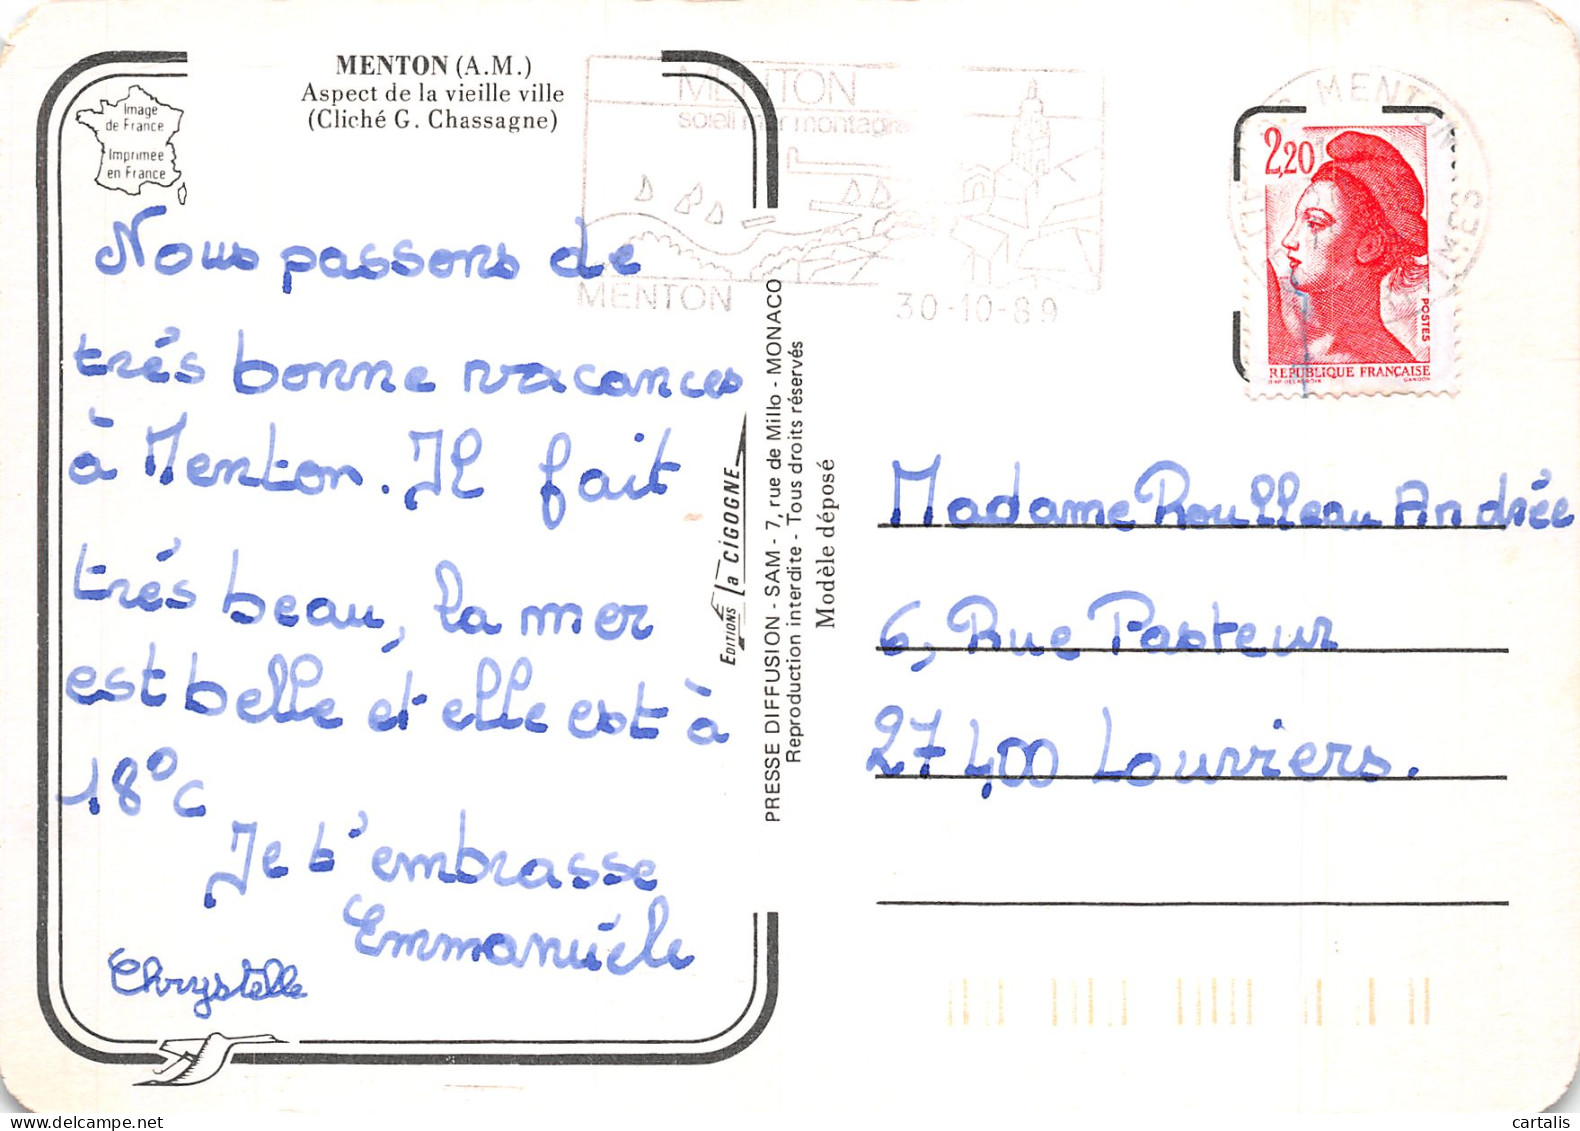 MENTON (A.M.)
Aspect de la vieille ville
(Cliché G. Chassagne)
Image
de France
Imprimée
en France
Nous passons de
trés bonne vacances
à Menton. Il fait
trés beau, la mer
est belle et elle est à
18°c
Je t'embrasse
Emmanuéle
Chrystelle
MENTON
soleil mer montagne
MENTON
30-10-89
EDITIONS la CIGOGNE
PRESSE DIFFUSION - SAM - 7, rue de Millo - MONACO
Reproduction interdite - Tous droits réservés
Modèle déposé
MENTON
2,20
POSTES
REPUBLIQUE FRANÇAISE
GANDON
Madame Roulleau Andrée
6, Rue Pasteur
27400 Louviers.
cartalis